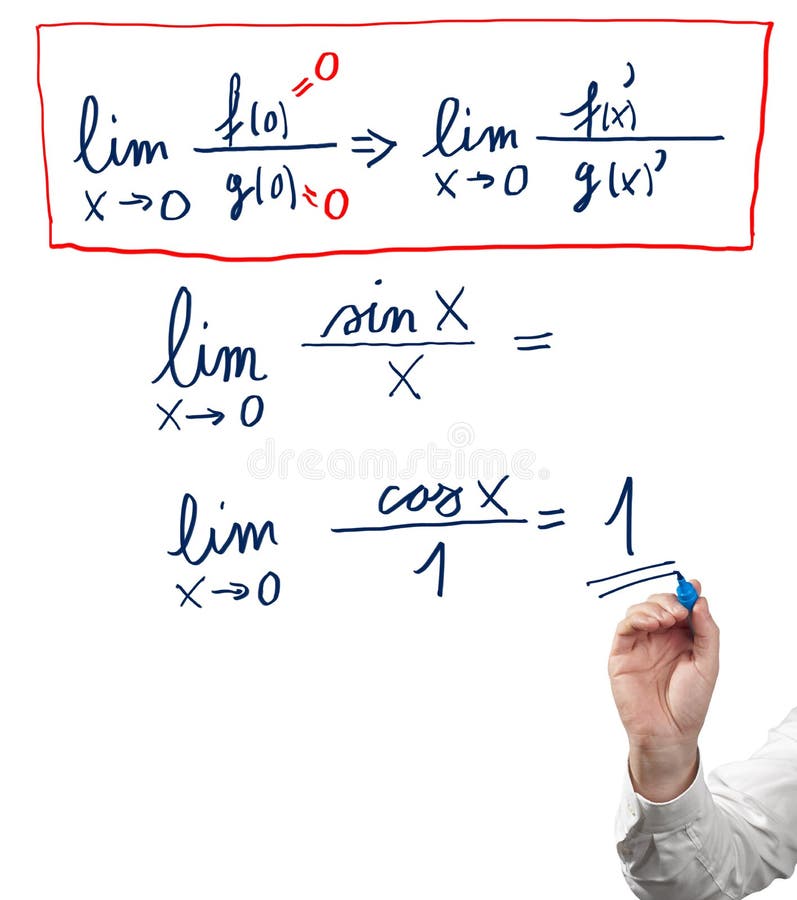 lim x→0 f(0)=0 / g(0)=0 ⇒ lim x→0 f(x)' / g(x)'
lim x→0 sin x / x =
dreamstime
lim x→0 cos x / 1 = 1